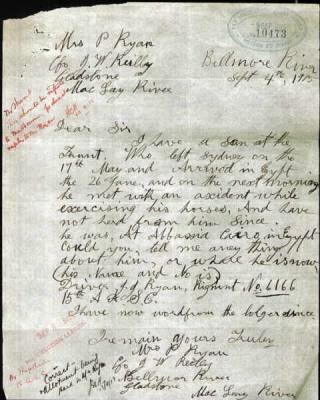 10473
Mrs P Ryan
C/o J. W Reilly
Gladstone
Mac Lay River
Bellmore River
Sept 4th, 1915
Dear Sir
I have a son at the
Frunt. Who left Sydney on the
17th May and Arrived in Eygt
the 26 June, and on the next morning
he met with an axcident while
exercising his horses, And have
not herd from him since.
he was, At Abbassia Cairo, in Eygypt
Could you, tell me arey thing
about him, or while he is now
(his Name and No is)
Driver J. J Ryan, Regment No. 6166
15th A. A. S. C.
I have now word from the lodger since
I remain yours Truley
Mrs P Ryan
C/o J W Reilly
Bellmore River
Gladstone
Mac Lay River
Correct
allotment being
paid to Mrs Ryan